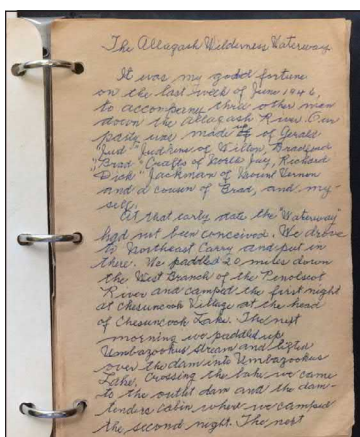 The Allagash Wilderness Waterway
It was my good fortune
on the last week of June 1946,
to accompany three other men
down the Allagash River. Our
party was made up of Gerald
"Jud" Judkins of Wilton, Bradford
"Brad" Crafts of North Jay, Richard
"Dick" Jackman of Mount Vernon
and a cousin of Brad, and my-
self.
At that early date the "Waterway"
had not been conceived. We drove
to Northeast Carry and put in
there. We paddled 20 miles down
the West Branch of the Penobscot
River and camped the first night
at Chesuncook Village at the head
of Chesuncook Lake. The next
morning we paddled up
Umbazookus Stream and
over the dam into Umbazookus
Lake. Crossing the lake we came
to the outlet dam and the dam-
tenders cabin where we camped
the second night. The next